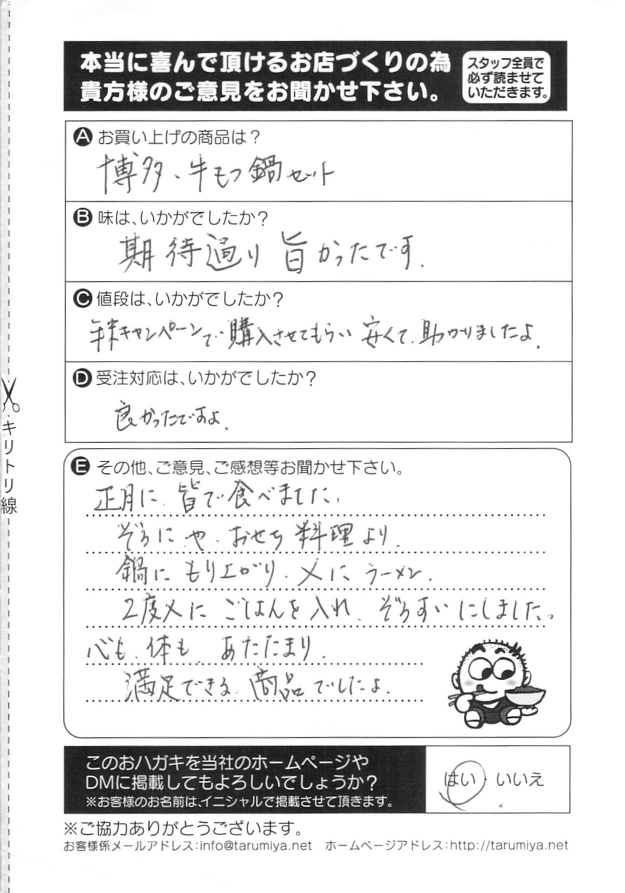 本当に喜んで頂けるお店づくりの為
貴方様のご意見をお聞かせ下さい。
スタッフ全員で
必ず読ませて
いただきます。
A お買い上げの商品は?
博多、牛もつ鍋セット
B 味は、いかがでしたか?
期待通り 旨かったです.
C 値段は、いかがでしたか?
年末キャンペーンで購入させてもらい 安くて、助かりましたよ.
D 受注対応は、いかがでしたか?
良かったですよ.
E その他、ご意見、ご感想等お聞かせ下さい。
正月に、皆で食べました。
ぞうにや、おせち料理より.
鍋にもり上がり、〆にラーメン.
2度〆に ごはんを入れ、ぞうすいにしました。
心も、体も、あたたまり.
満足できる、商品でしたよ.
キリトリ線
このおハガキを当社のホームページや
DMに掲載してもよろしいでしょうか?
※お客様のお名前は、イニシャルで掲載させて頂きます。
はい・いいえ
※ご協力ありがとうございます。
お客様係メールアドレス:info@tarumiya.net ホームページアドレス:http://tarumiya.net